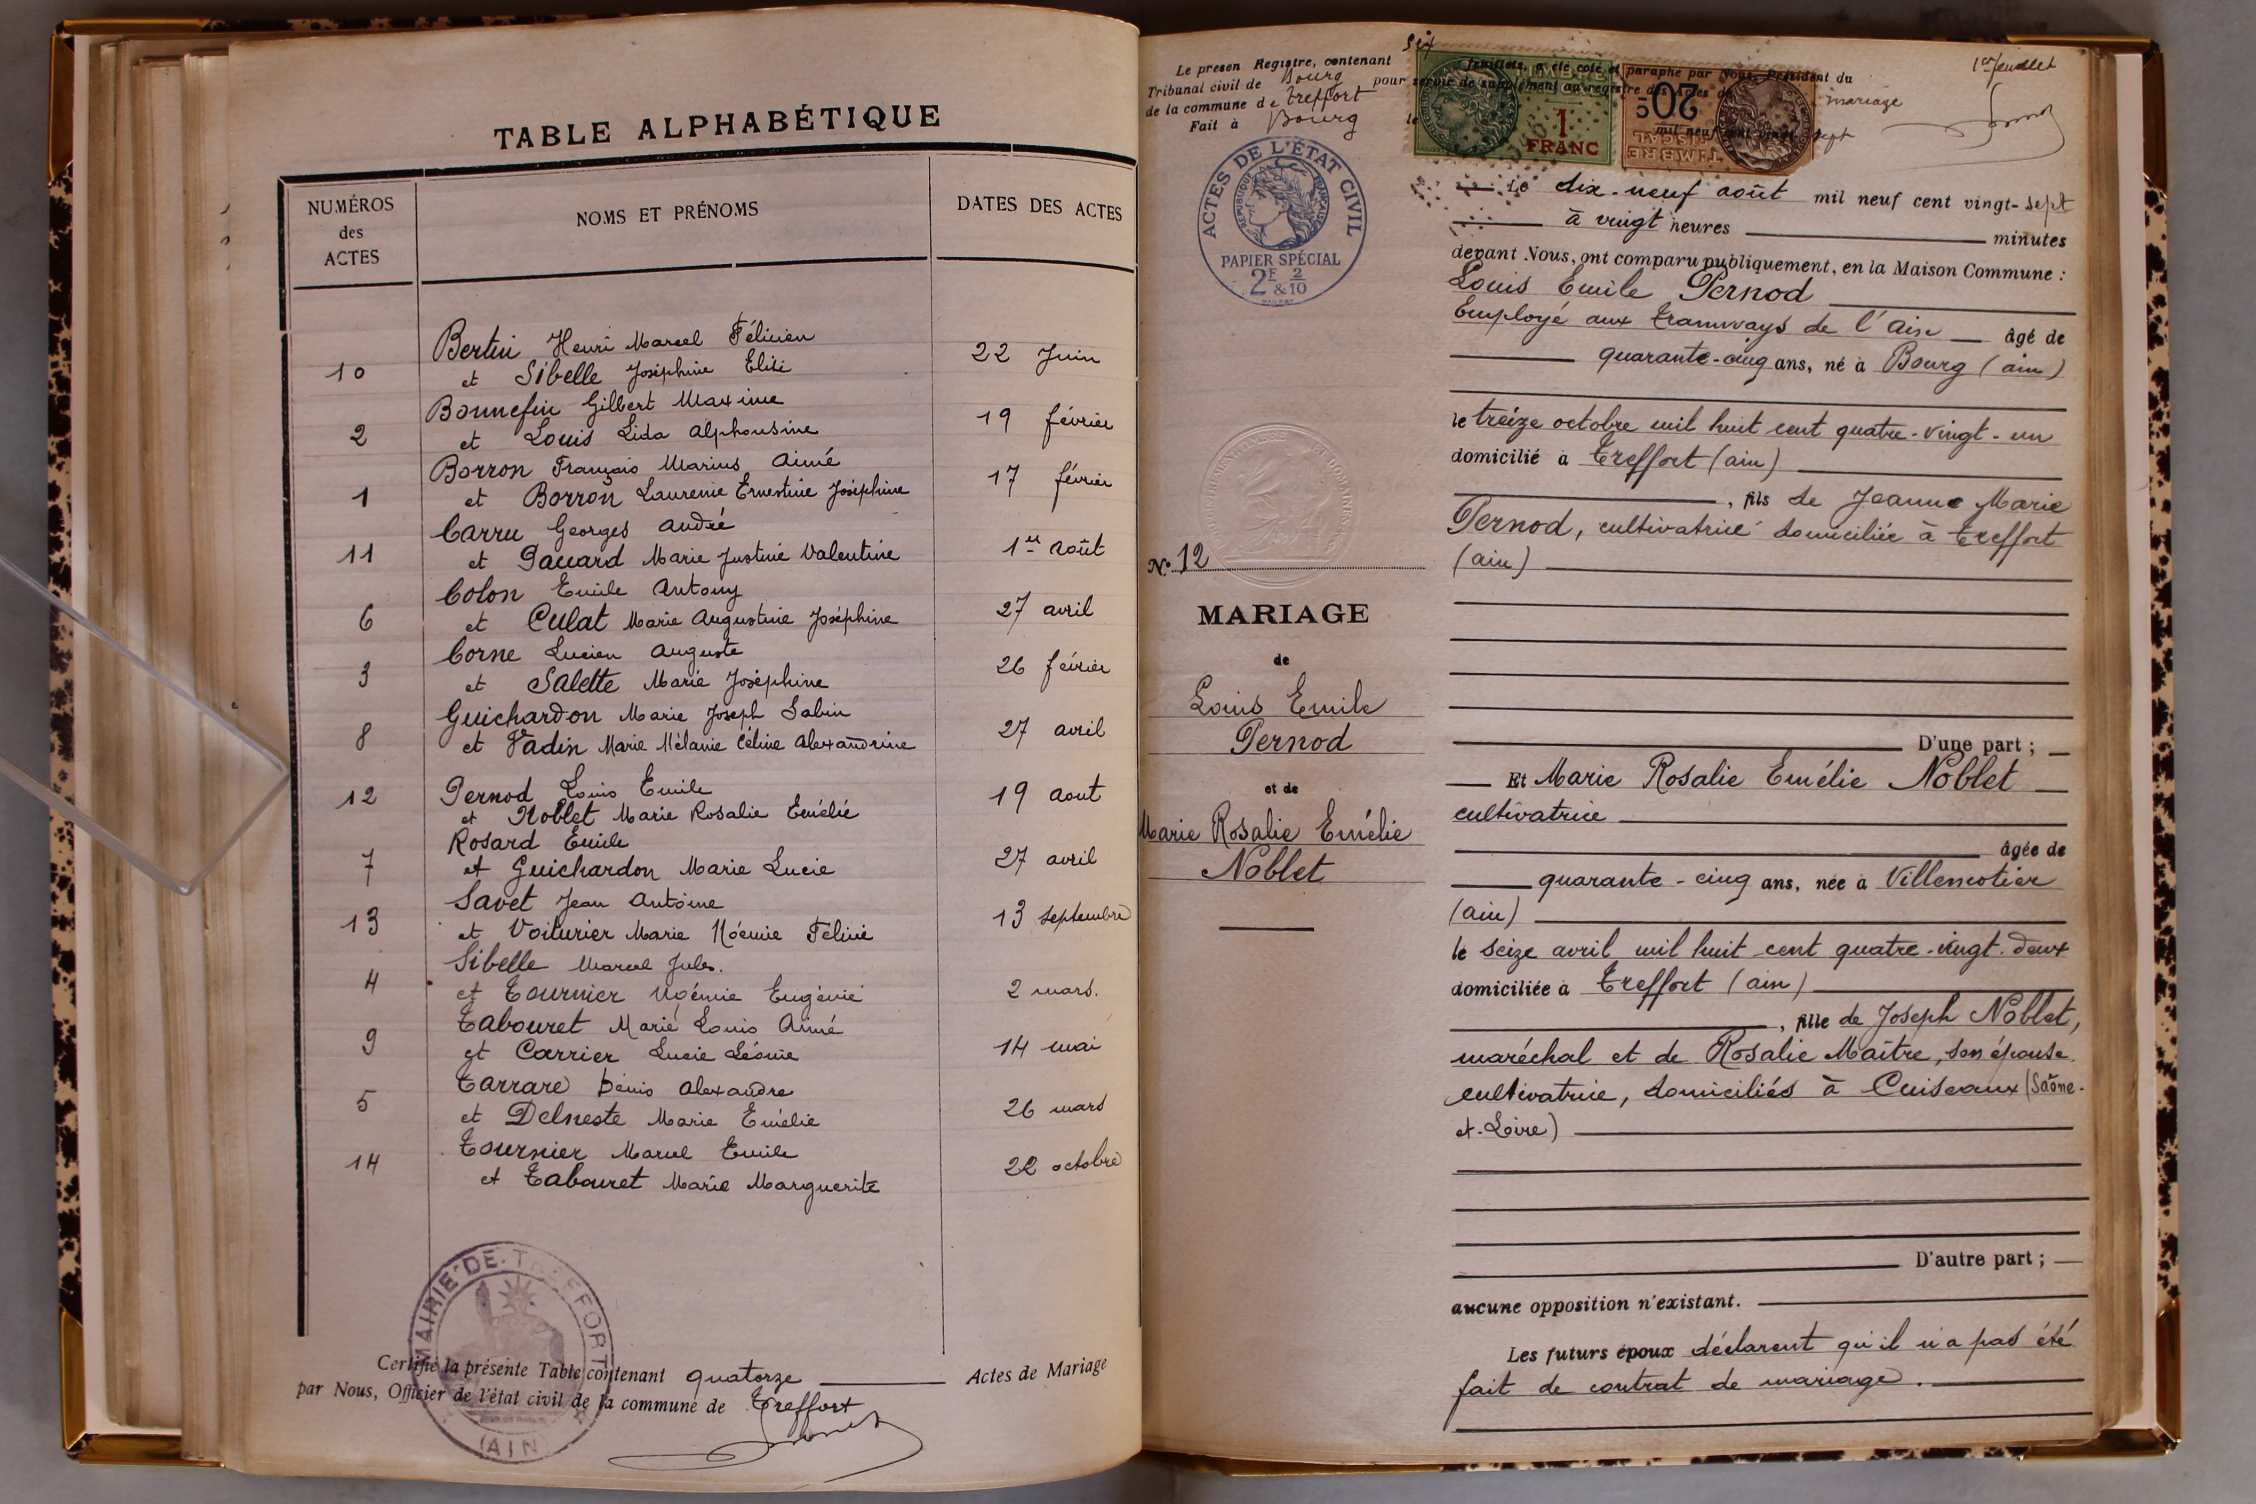 TABLE ALPHABÉTIQUE
NUMÉROS
des
ACTES
NOMS ET PRÉNOMS
DATES DES ACTES
10 Bertin Henri Marcel Félicien
et Sibelle Joséphine Elise 22 Juin
Bonnefin Gilbert Maxime
2 et Louis Lida Alphonsine 19 février
Borron François Marius Aimé
1 et Borron Laurencie Ernestine Joséphine 17 février
Carru Georges André
11 et Paccard Marie Justine Valentine 1er août
Colon Emile Antony
6 et Culat Marie Augustine Joséphine 27 avril
Corne Lucien Auguste
3 et Salette Marie Joséphine 26 février
Guichardon Marie Joseph Sabin
8 et Vadin Marie Mélanie Céline Alexandrine 27 avril
12 Pernod Louis Emile 19 aout
et Noblet Marie Rosalie Emélie
Rosard Emile
7 et Guichardon Marie Lucie 27 avril
Savet Jean Antoine
13 et Voiturier Marie Noémie Féline 13 septembre
Sibelle Marcel Jules.
4 et Tournier Noémie Eugénie 2 mars.
Tabouret Marie Louis Aimé
9 et Carrier Lucie Léonie 14 mai
Tarrare Dénis Alexandre
5 et Delneste Marie Emélie 26 mars
Tournier Marcel Emile
14 et Tabouret Marie Marguerite 22 octobre
MAIRIE DE TREFFORT
(AIN)
Certifié la présente Table contenant quatorze Actes de Mariage
par Nous, Officier de l'état civil de la commune de Treffort
Le presen Registre, contenant six feuillets, a été coté et paraphé par Nous, Président du
Tribunal civil de Bourg pour servir de supplément au registre des actes de mariage
de la commune de Treffort
Fait à Bourg le mil neuf cent vingt-sept
1er feuillet
TIMBRE
1
FRANC
50c
TIMBRE
FISCAL
ACTES DE L'ÉTAT CIVIL
RÉPUBLIQUE FRANÇAISE
PAPIER SPÉCIAL
2F & 2/10
No 12
MARIAGE
de
Louis Emile
Pernod
et de
Marie Rosalie Emélie
Noblet
Le dix-neuf août mil neuf cent vingt-sept
à vingt heures minutes
devant Nous, ont comparu publiquement, en la Maison Commune :
Louis Emile Pernod
Employé aux tramways de l'Ain âgé de
quarante-cinq ans, né à Bourg (ain)
le treize octobre mil huit cent quatre-vingt-un
domicilié à Treffort (ain)
, fils de Jeanne Marie
Pernod, cultivatrice domiciliée à Treffort
(ain)
D'une part ;
Et Marie Rosalie Emélie Noblet
cultivatrice
âgée de
quarante-cinq ans, née à Villemotier
(ain)
le seize avril mil huit cent quatre-vingt-deux
domiciliée à Treffort (ain)
, fille de Joseph Noblet,
maréchal et de Rosalie Maître, son épouse
cultivatrice, domiciliés à Cuiseaux (Saône-
et-Loire)
D'autre part ;
aucune opposition n'existant.
Les futurs époux déclarent qu'il n'a pas été
fait de contrat de mariage.